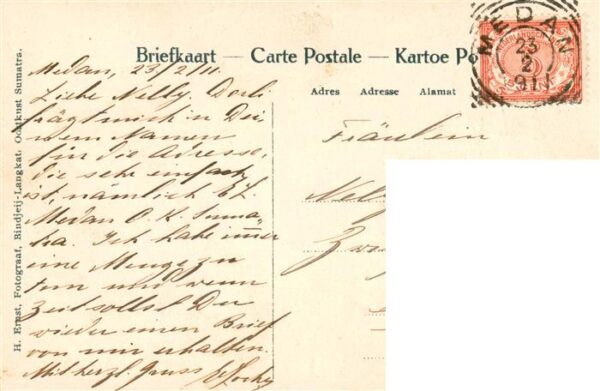 Briefkaart — Carte Postale — Kartoe Po
Adres Adresse Alamat
MEDAN
23
2
1911
H. Ernst, Fotograaf, Bindjeij-Langkat. Oostkust Sumatra.
Medan, 23/2/11.
Liebe Nelly. Dorli
frägt mich in Dei
nem Namen
für die Adresse,
die sehr einfach
ist, nämlich
Medan O. K. Suma-
tra. Ich habe immer
eine Menge zu
tun und wenn
Zeit sollst Du
wieder einen Brief
von mir erhalten.
Mit herzl. Gruss
Fräulein
Nelly